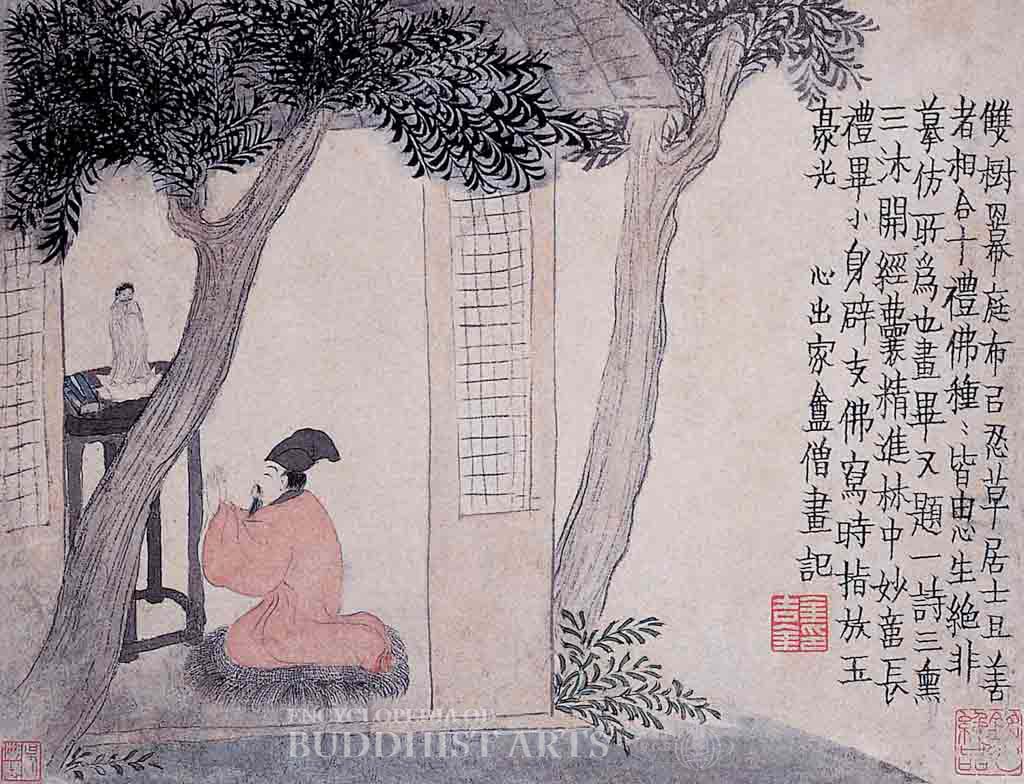 雙樹羃庭布㠯忍草居士且善
者相合十禮佛種〻皆由心生絕非
摹仿所爲也畫畢又題一詩三熏
三沐開經囊精進林中妙長
禮畢小身辟支佛寫時指放玉
豪光 心出家盦僧畫記
ENCYCLOPEDIA OF
BUDDHIST ARTS